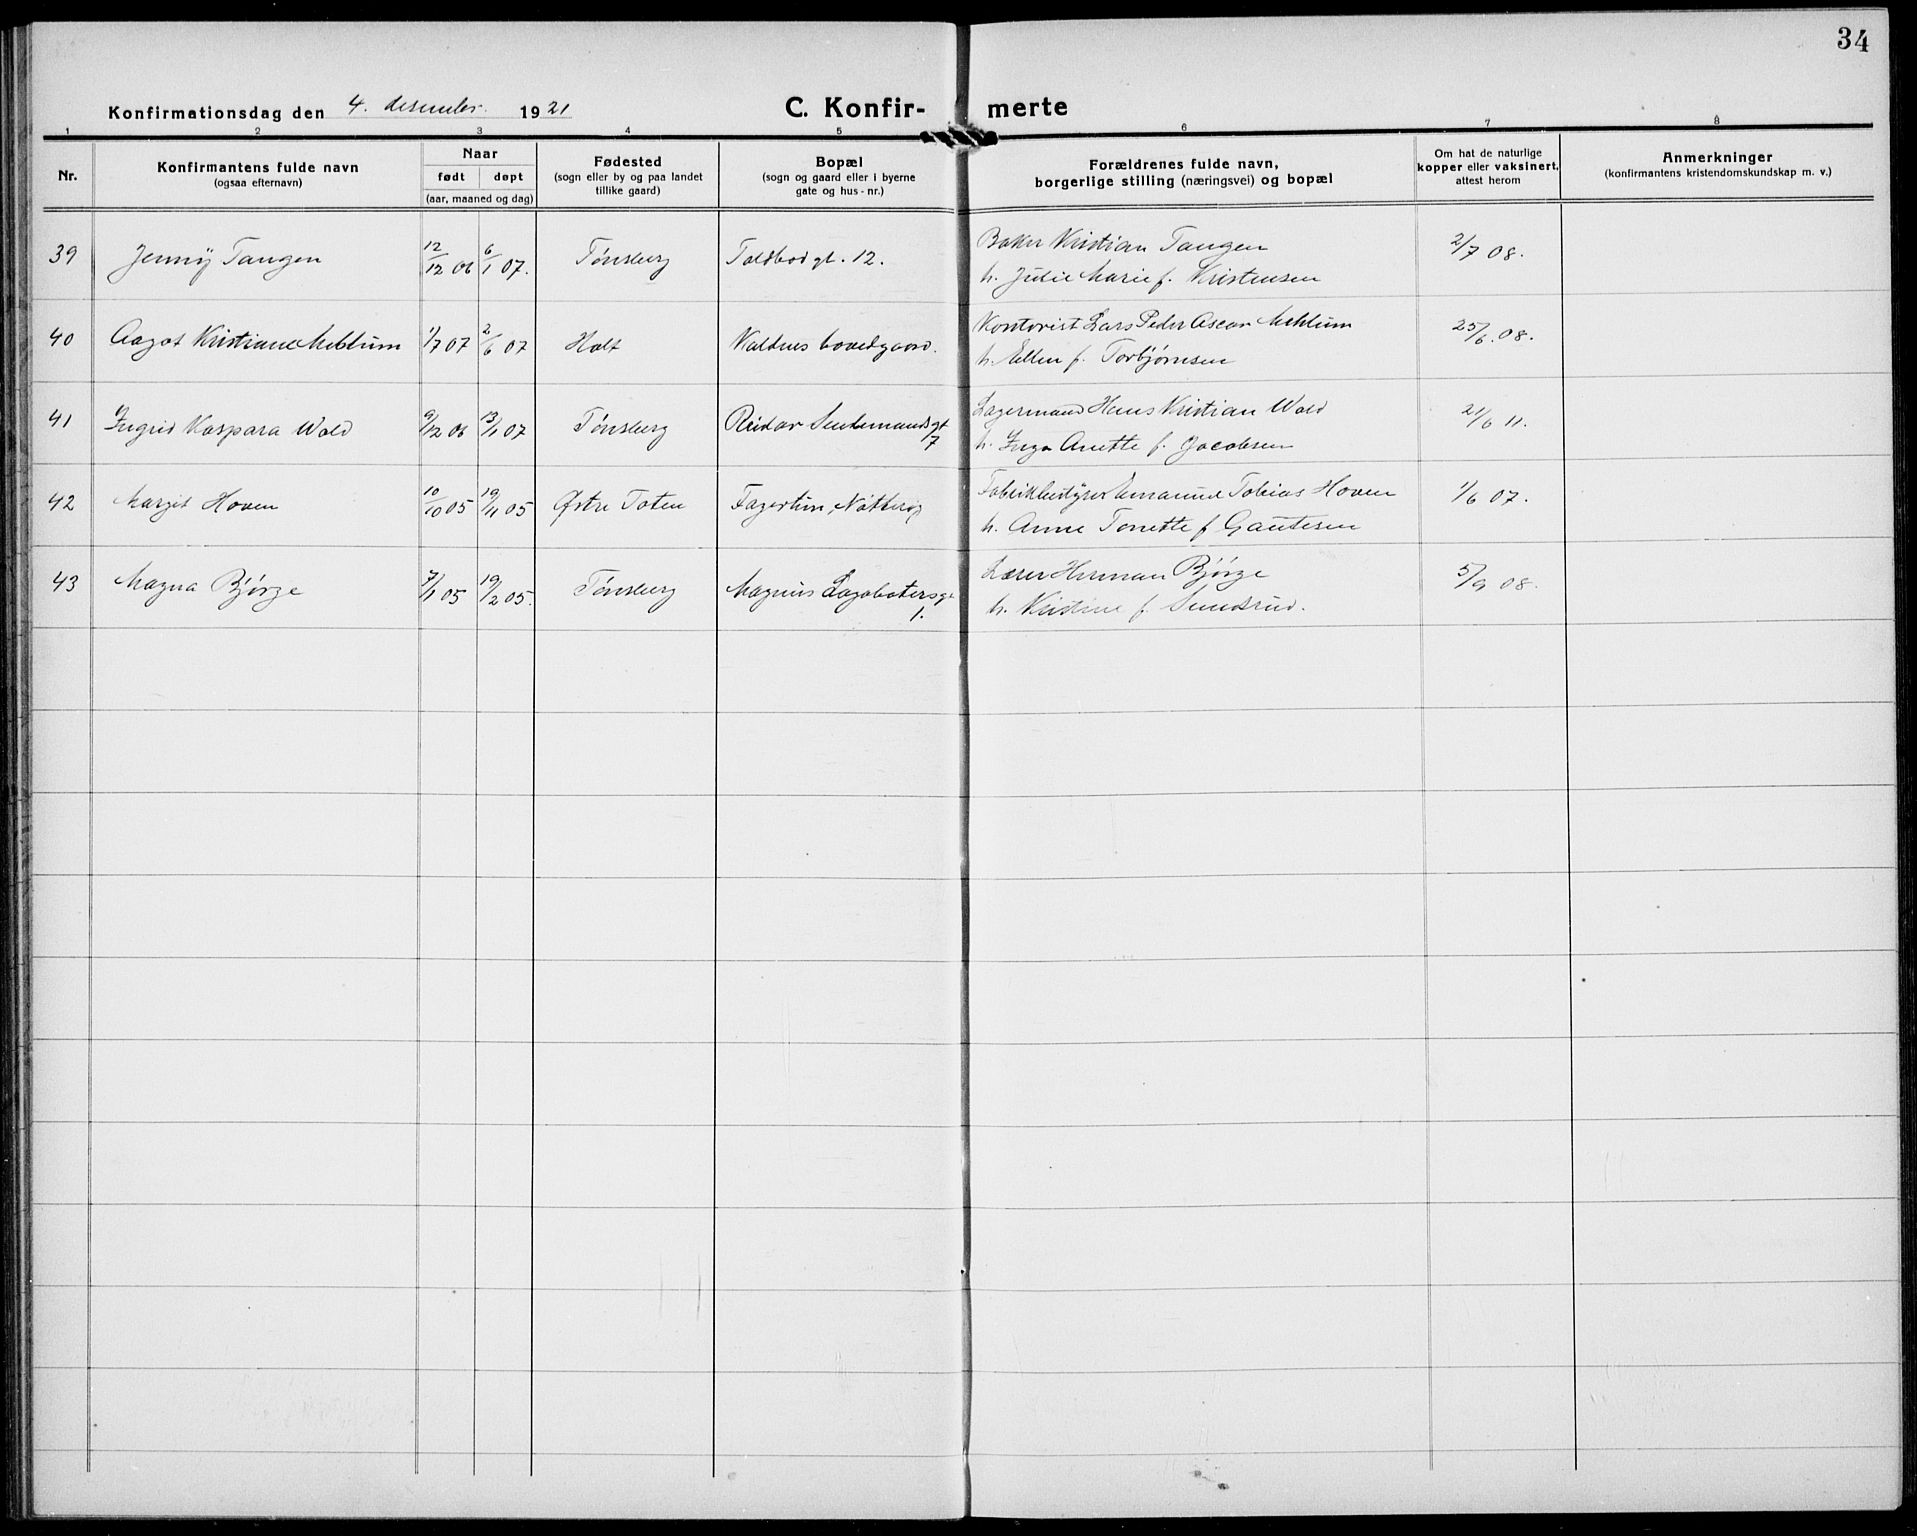 34
Konfirmationsdag den 4. desember 1921
C. Konfir- merte
1 2 3 4 5 6 7 8
Nr.
Konfirmantens fulde navn
(ogsaa efternavn)
Naar
født døpt
(aar, maaned og dag)
Fødested
(sogn eller by og paa landet
tillike gaard)
Bopæl
(sogn og gaard eller i byerne
gate og hus-nr.)
Forældrenes fulde navn,
borgerlige stilling (næringsvei) og bopæl
Om hat de naturlige
kopper eller vaksinert,
attest herom
Anmerkninger
(konfirmantens kristendomskundskap m. v.)
39 Jenny Tangen 12/12 06 6/1 07. Tønsberg Toldbodgt. 12. Baker Kristian Tangen 2/7 08.
h. Julie Marie f. Kristensen
40 Aagot Kristiane Mehlum 1/7 07 2/6 07 Holt hovedgaard. Kontorist Lars Peder Oscar Mehlum 25/6. 08.
h. Ellen f. Torbjørnsen
41 Ingrid Kaspara Wold 9/12 06 13/1 07 Tønsberg Reidar Sendemandsgt Lagermand Hans Kristian Wold 21/6 11.
7 h. Inga Anette f. Jacobsen
42 Margit Hoven 10/10 05 19/11 05 Østre Toten Fagertun, Nøtterø Fabrikbestyrer Emanuel Tobias Hoven 1/6 07.
h. Anne Tonette f Gautesen
43 Magna Bjørge 7/1 05 19/2 05. Tønsberg Magnus Lagabøtersgt Læser Herman Bjørge 5/9 08.
1. h. Kristine f. Sundsrud.